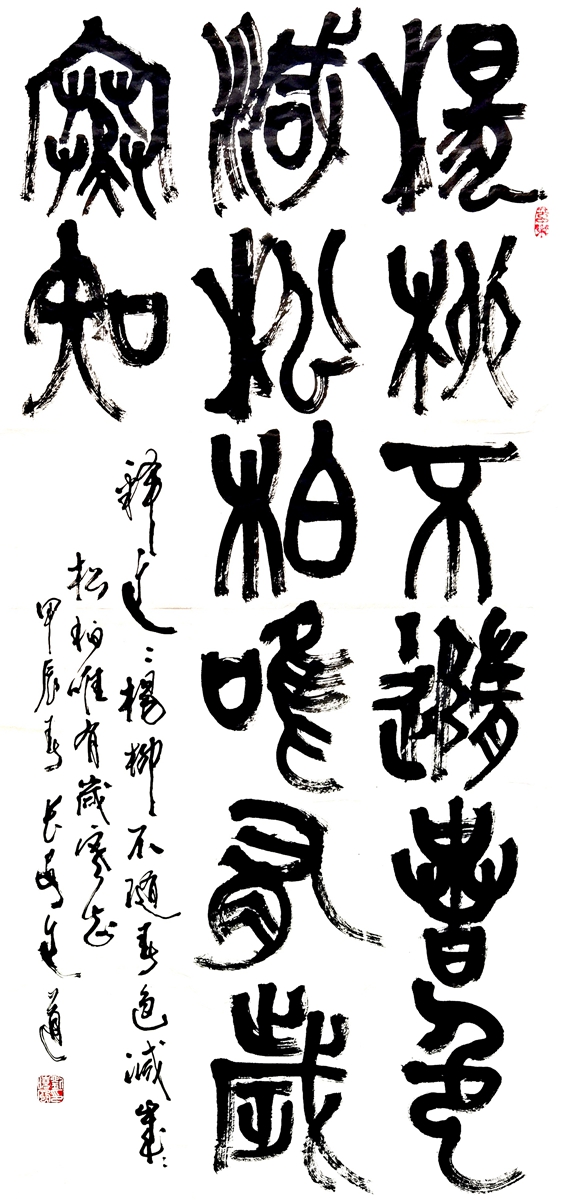 楊柳不隨春色
減松柏唯有歲
寒知
楊柳不隨春色減
松柏唯有歲寒知
甲辰春